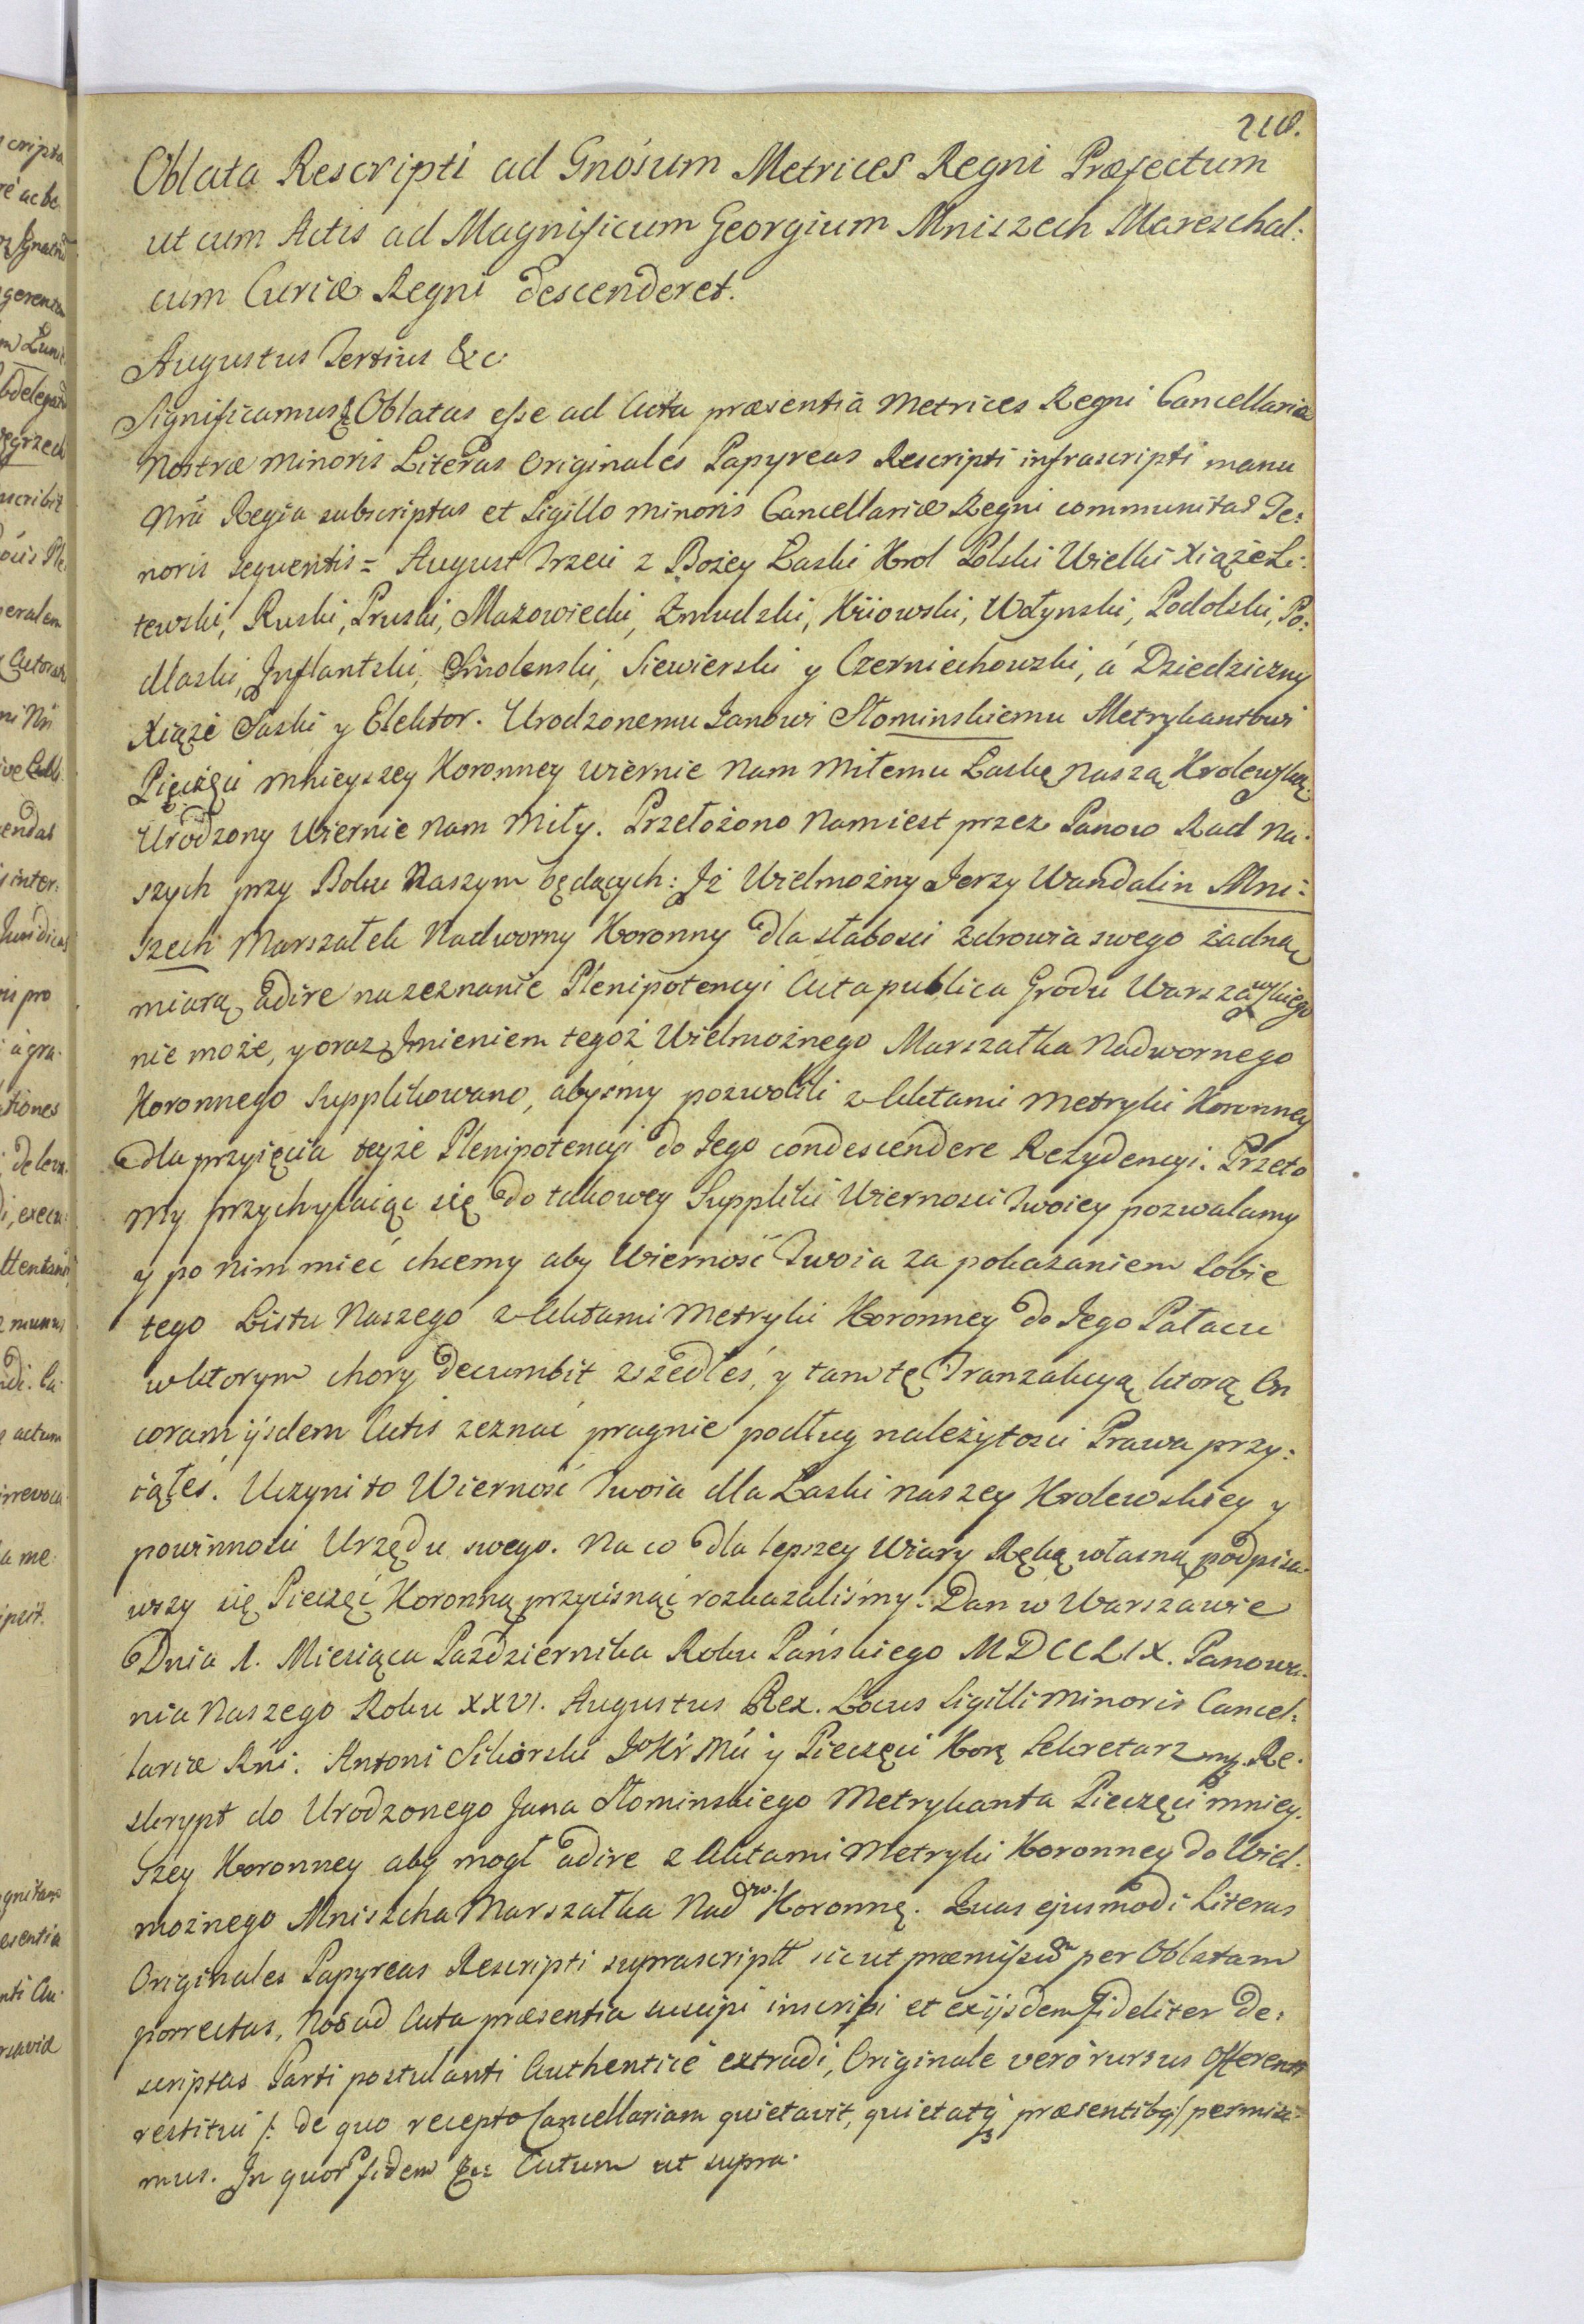 218.
Oblata Rescripti ad Gnosum Metrices Regni Præfectum
ut cum Actis ad Magnificum Georgium Mniszech Mareschal:
cum Curiæ Regni descenderet.
Augustus Tertius &c
Significamus &c Oblatas esse ad Acta præsentia Metrices Regni Cancellariæ
Nostræ Minoris Literas Originales Papyreas Rescripti infrascripti manu
Nrâ Regia subscriptas et Sigillo minoris Cancellariæ Regni communitas Te:
noris sequentis = August Trzeci z Bożey Łaski Krol Polski Wielki Xiąże Li:
tewski, Ruski, Pruski, Mazowiecki, Zmudzki, Kiiowski, Wołynski, Podolski, Po:
dlaski, Inflantski, Smolenski, Siewierski y Czerniechowski, á Dziedziczny
Xiąże Saski y Elektor. Urodzonemu Janowi Słominskiemu Metrykantowi
Pięczęci Mnieyszey Koronney wiernie Nam Miłemu Łaskę Naszą Krolewską.
Urodzony Wiernie Nam Miły. Przełożono Nam iest przez Panow Rad Na:
szych przy Boku Naszym będących: Iż Wielmożny Jerzy Wandalin Mni:
szech Marszałek Nadworny Koronny dla słabosci Zdrowia swego żadną
miarą adire na zeznanie Plenipotencyi Acta publica Grodu Warszawskiego
nie może, y oraz Imieniem tegoż Wielmożnego Marszałka Nadwornego
Koronnego Supplikowano, abyśmy pozwolili z Aktami Metryki Koronney
dla przyięcia teyże Plenipotencyi do Jego condescendere Rezydencyi. Przeto
My przychylaiąc się do takowey Suppliki Wiernosci Twoiey pozwalamy
y po nim mieć chcemy aby Wierność Twoia za pokazaniem Sobie
tego Listu Naszego z Aktami Metryki Koronney do Jego Pałacu
w ktorym chory decumbit zszedłeś, y tam tę Tranzakcyą ktorą On
coram ijsdem Actis zeznać pragnie podług należytosci Prawa przy:
iąłeś. Uczyni to Wierność Twoia dla Łaski naszey Krolewskiey y
powinnosci Urzędu swego. Na co dla lepszey Wiary Ręką własną podpisa:
wszy się Pieczęć Koronną przycisnąć rozkazaliśmy. Dan w Warszawie
Dnia 1. Miesiąca Października Roku Pańskiego MDCCLIX. Panowa:
nia Naszego Roku XXVI. Augustus Rex. Locus Sigilli Minoris Cancel:
lariæ Rni. Antoni Sikorski JoKr Mći y Pieczęci Korę Sekretarz mp. Re:
skrypt do Urodzonego Jana Słominskiego Metrykanta Pieczęci mniey:
szey Koronney aby mogł adire z Aktami Metryki Koronney do Wiel:
możnego Mniszcha Marszałka Nadw. Koronnę. Quas ejusmodi Literas
Originales Papyreas Rescripti suprascriptt sicut præmissũ per Oblatam
porrectas, Nos ad Acta præsentia suscipi inscribi et ex ijsdem fideliter de:
scriptas Parti postulanti Authentice extradi, Originale vero rursus Offerenti
restitui /: de quo recepto Cancellariam quietavit, quietatq præsentibq:/ permisi:
mus. In quor fidem &c Actum ut supra.